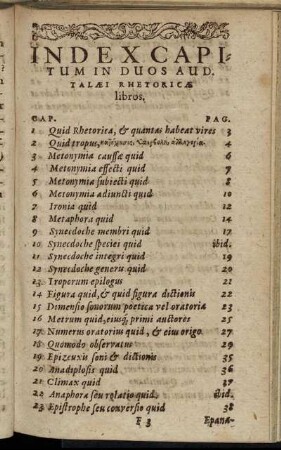 INDEX CAPI-
TUM IN DUOS AUD.
TALÆI RHETORICÆ
libros,
CAP. PAG.
1 Quid Rhetorica, & quantas habeat vires 3
2 Quid tropus, 4
3 Metonymia caussæ quid 6
4 Metonymia effecti quid 7
5 Metonymia subiecti quid 8
6 Metonymia adiuncti quid 10
7 Ironia quid 12
8 Metaphora quid 14
9 Synecdoche membri quid 17
10 Synecdoche speciei quid ibid.
11 Synecdoche integri quid 19
12 Synecdoche generis quid 20
13 Troporum epilogus 21
14 Figura quid, & quid figura dictionis 22
15 Dimensio sonorum poetica vel oratoria 23
16 Metrum quid, eiusq́; primi auctores 25
17 Numerus oratorius quid, & eius origo. 27
18 Quomodo observatus 29
19 Epizeuxis soni & dictionis 35
20 Anadiplosis quid 36
21 Climax quid 37
22 Anaphora seu relatio quid. ibid.
23 Epistrophe seu conversio quid 38
F 3 Epana-